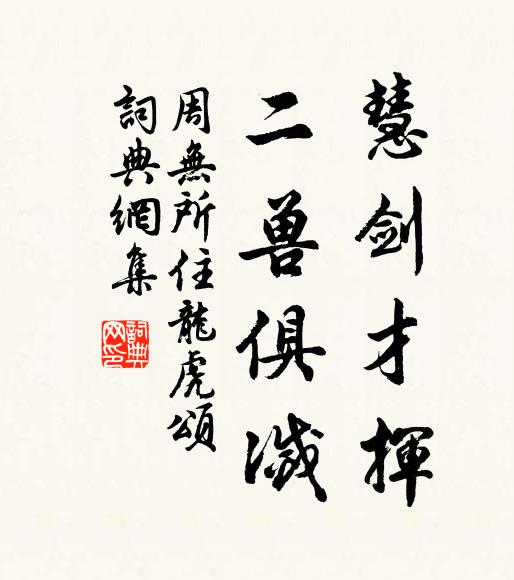 慧剑才揮
二兽俱滅
周無所住龍虎頌
詞典網集
詞典網印